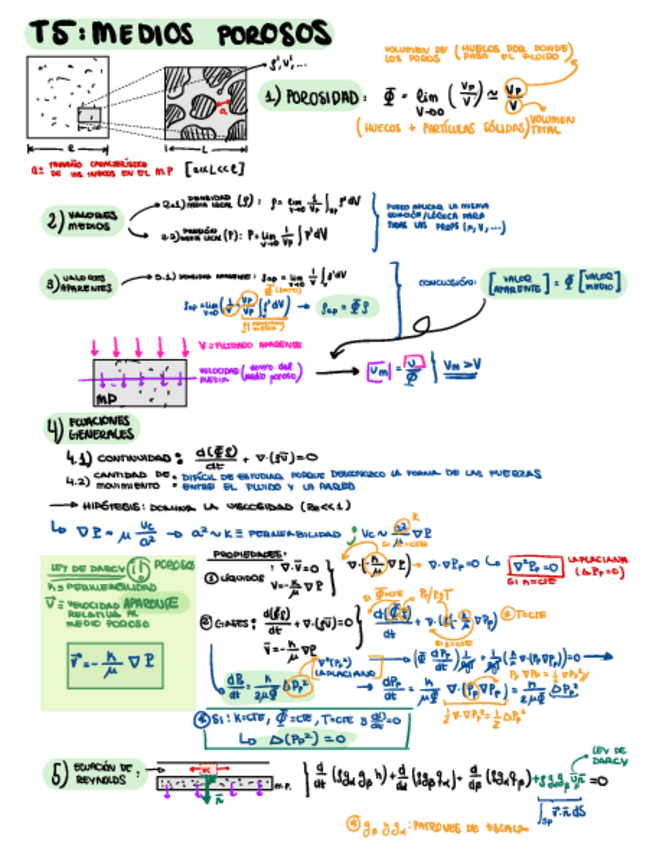 T5: MEDIOS POROSOS
VOLUMEN DE LOS POROS (HUECOS POR DONDE PASA EL FLUIDO)
ρ', v', ...
1.) POROSIDAD: Φ = lim V→∞ (Vp/V) ≃ Vp/V
(HUECOS + PARTÍCULAS SÓLIDAS) VOLUMEN TOTAL
a
e
L
a = TAMAÑO CARACTERÍSTICO DE LOS HUECOS EN EL MP [a<<L<<e]
2) VALORES MEDIOS
2.1) DENSIDAD MEDIA LOCAL (ρ): ρ = lim V→0 1/Vp ∫Vp ρ' dV
2.2) PRESIÓN MEDIA LOCAL (P): P = lim V→0 1/Vp ∫ P' dV
PUEDO APLICAR LA MISMA ECUACIÓN/LÓGICA PARA TODAS LAS PROPS (μ, V, ...)
3) VALORES APARENTES
3.1) DENSIDAD APARENTE: ρap = lim V→0 1/V ∫ ρ' dV
Φ (DATO)
ρap = lim V→0 (1/V Vp/Vp ∫ ρ' dV) → ρap = Φρ
ρ (DENSIDAD MEDIA)
CONCLUSIÓN: [VALOR APARENTE] = Φ [VALOR MEDIO]
V = FILTRADO APARENTE
VELOCIDAD MEDIA (dentro del medio poroso)
MP
→ Vm = V/Φ } Vm > V
4) ECUACIONES GENERALES
4.1) CONTINUIDAD: d(Φρ)/dt + ∇·(ρv̄) = 0
4.2) CANTIDAD DE MOVIMIENTO: DIFÍCIL DE ESTUDIAR PORQUE DESCONOZCO LA FORMA DE LAS FUERZAS ENTRE EL FLUIDO Y LA PARED
→ HIPÓTESIS: DOMINA LA VISCOSIDAD (Re<<1)
↳ ∇P ~ μ Vc/a² → a² ~ K ≡ PERMEABILIDAD; Vc ~ a²/μ ∇P
K
LEY DE DARCY POROSOS
K ≡ PERMEABILIDAD
V̄ ≡ VELOCIDAD APARENTE RELATIVA AL MEDIO POROSO
v̄ = - K/μ ∇P
PROPIEDADES:
① LÍQUIDOS: ∇·v̄ = 0
V = - K/μ ∇P
∇·(-K/μ ∇P) → ∇·∇Pp = 0 ↳ ∇²Pp = 0
SI K=CTE
LAPLACIANA (ΔPp = 0)
② GASES: d(Φρ)/dt + ∇·(ρv̄) = 0
v̄ = - K/μ ∇P
SI Φ=CTE
P/RgT
d(Φρ)/dt + ∇·(ρ(-K/μ ∇Pp)) T=CTE
SI K=CTE
∇²(Pp²) LAPLACIANO
dPp/dt = K/2μΦ ΔPp²
dPp/dt = K/μΦ ∇·(Pp∇Pp) = K/2μΦ ΔPp²
½∇·∇Pp² = ½ΔPp²
SI: K=CTE, Φ=CTE, T=CTE y d()/dt = 0
↳ Δ(Pp²) = 0
5) ECUACIÓN DE REYNOLDS:
m.p.
n̄
LEY DE DARCY
= 0
∫Sp v̄·n̄ dS
gβ y gα: PATRONES DE ESCALA